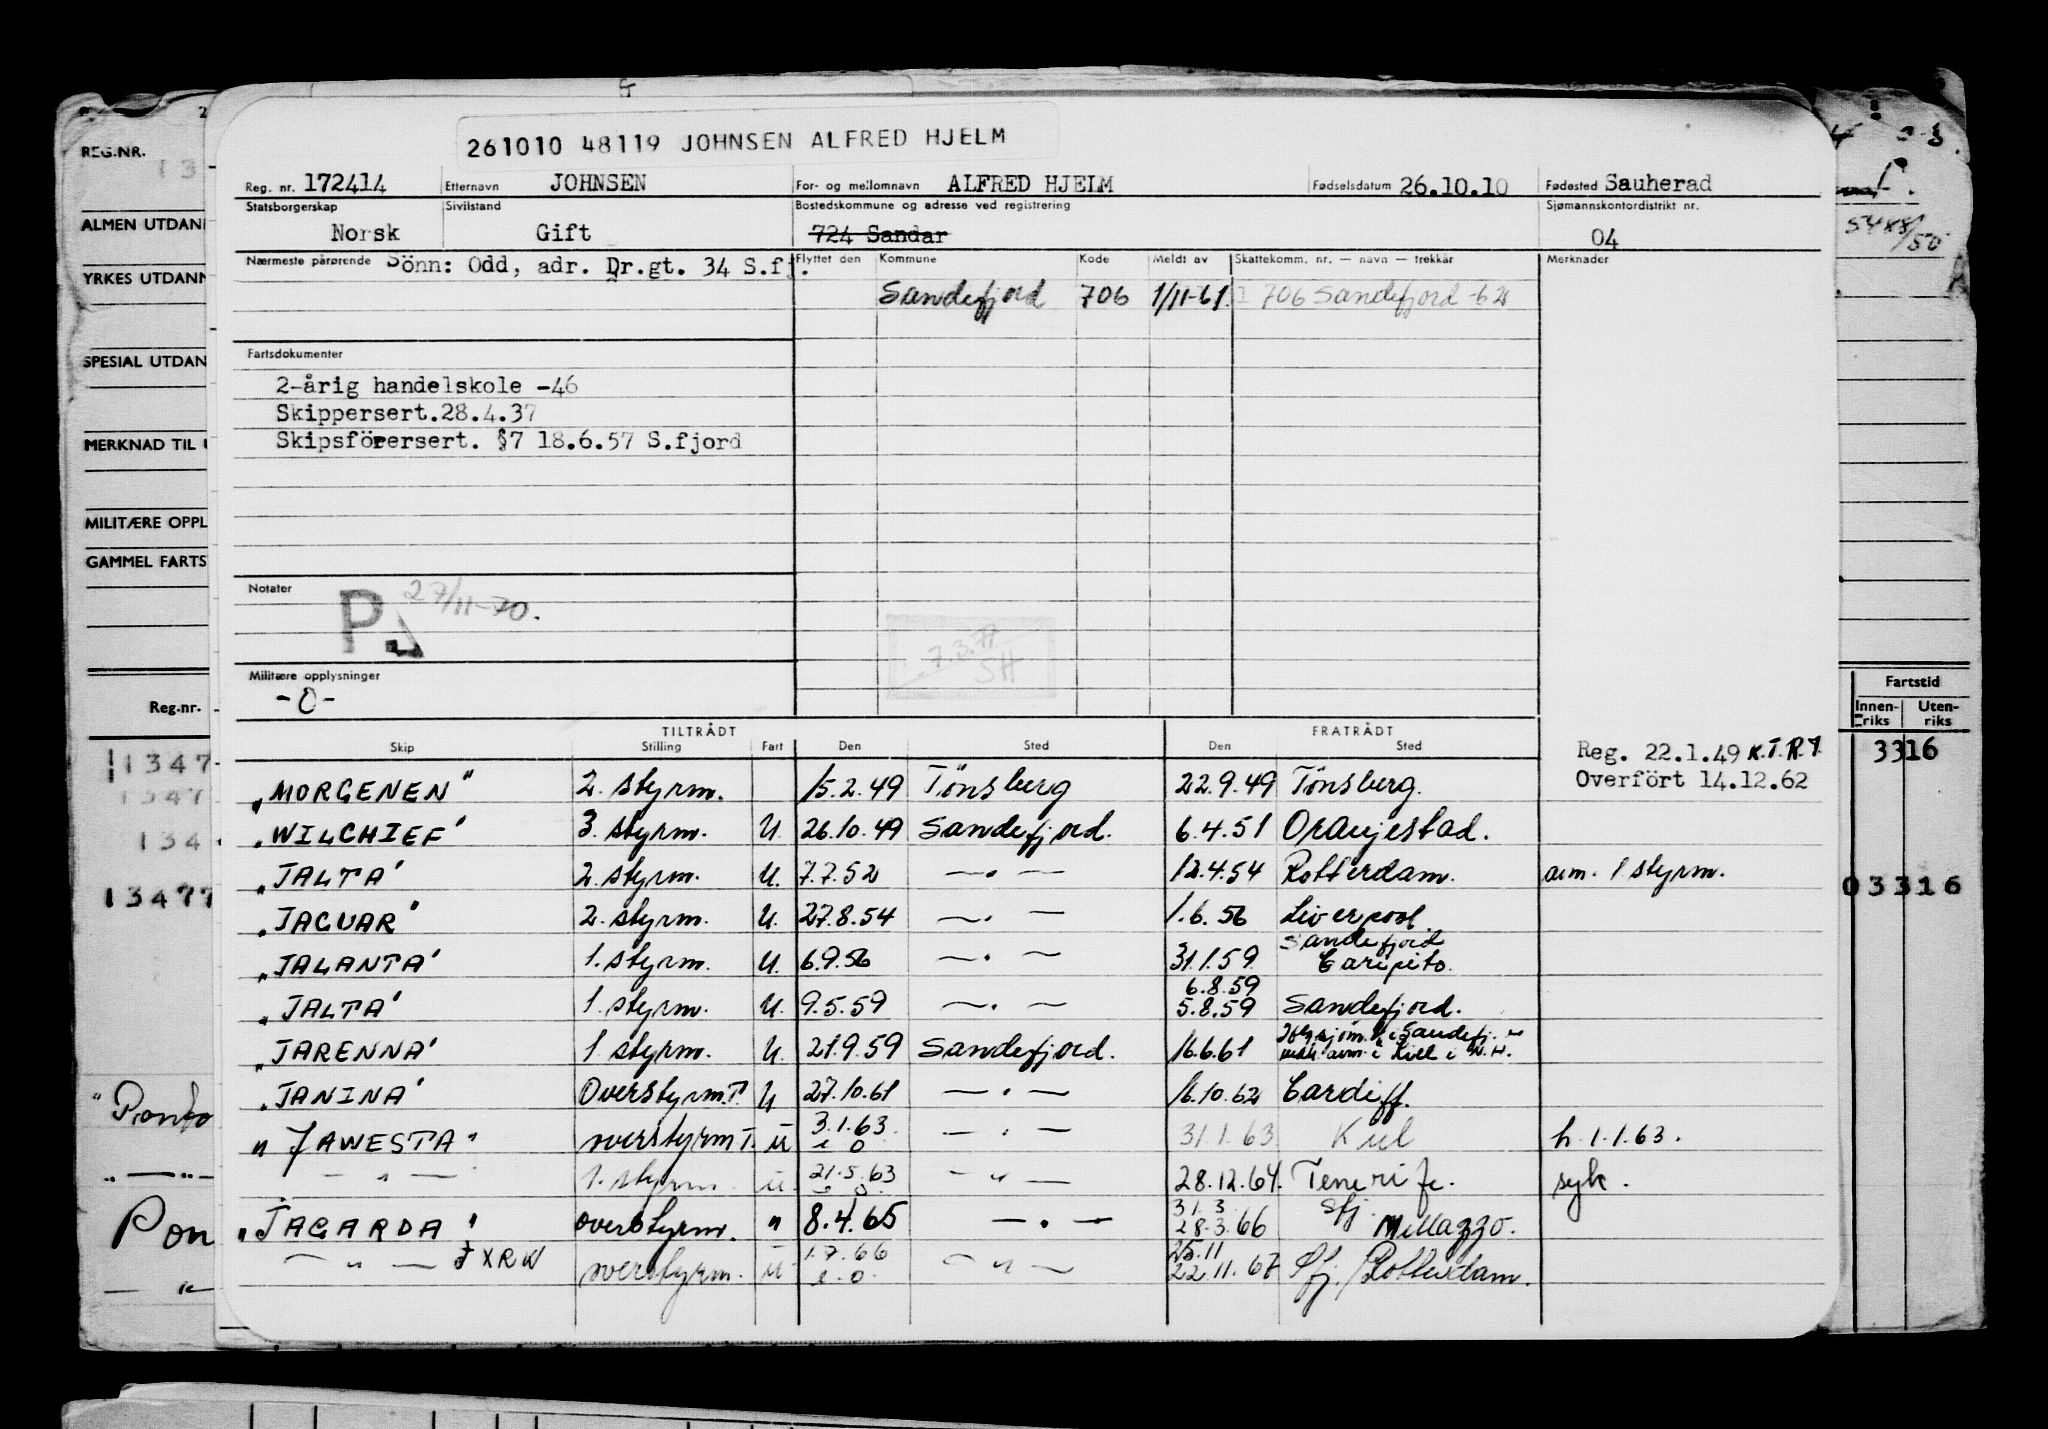 261010 48119 JOHNSEN ALFRED HJELM
Reg. nr. 172414 Etternavn JOHNSEN For- og mellomnavn ALFRED HJELM Fødselsdatum 26.10.10 Fødested Sauherad
Statsborgerskap Sivilstand Bostedskommune og adresse ved registrering Sjømannskontordistrikt nr.
Norsk Gift 724 Sandar 04
Nærmeste pårørende Sönn: Odd, adr. Dr.gt. 34 S.fj. Flyttet den Kommune Kode Meldt av Skattekomm. nr. — navn — trekkår Merknader
Sandefjord 706 1/11-61. 706 Sandefjord -62
Fartsdokumenter
2-årig handelskole -46
Skippersert.28.4.37
Skipsförersert. §7 18.6.57 S.fjord
Notater
P 27/11-70.
7.3.77
SH
Militære opplysninger
-0-
TILTRÅDT FRATRÅDT
Skip Stilling Fart Den Sted Den Sted
Reg. 22.1.49 K.T.R.T.
Overfört 14.12.62
"MORGENEN" 2. styrm. 15.2.49 Tönsberg 22.9.49 Tönsberg.
"WILCHIEF" 3. styrm. U. 26.10.49 Sandefjord. 6.4.51 Oranjestad.
"JALTA" 2. styrm. U. 7.7.52 — . — 12.4.54 Rotterdam. avm. 1 styrm.
"JAGUAR" 2. styrm. U. 27.8.54 — . — 1.6.56 Liverpool
"JALANTA" 1. styrm. U. 6.9.56 — . — 31.1.59 Sandefjord Caripito.
6.8.59
"JALTA" 1. styrm. U. 9.5.59 — . — 5.8.59 Sandefjord.
"JARENNA" 1. styrm. U. 21.9.59 Sandefjord. 16.6.61 Sandefj. avm. i Kiel i
"JANINA" Overstyrm.T. U 27.10.61 — . — 16.10.62 Cardiff.
"JAWESTA" overstyrm T. U 3.1.63 e o — . — 31.1.63 Kiel h. 1.1.63.
— " — 1. styrm. U. 21.5.63 e o. — " — 28.12.64. Tenerife. syk.
"JAGARDA" overstyrm. " 8.4.65 — . — 31.3 28.3.66 Sfj. Milazzo.
— " — JXRW overstyrm. U 1.7.66 e.o. — " — 25.11 22.11.67 Sfj./Rotterdam.
REG.NR.
ALMEN UTDAN
YRKES UTDANN
SPESIAL UTDAN
MERKNAD TIL U
MILITÆRE OPPL
GAMMEL FARTS
Reg.nr.
1347
1347
134
13477
"Ponto
— " —
Pon
5488/50
Fartstid
Innenriks Utenriks
3316
03316